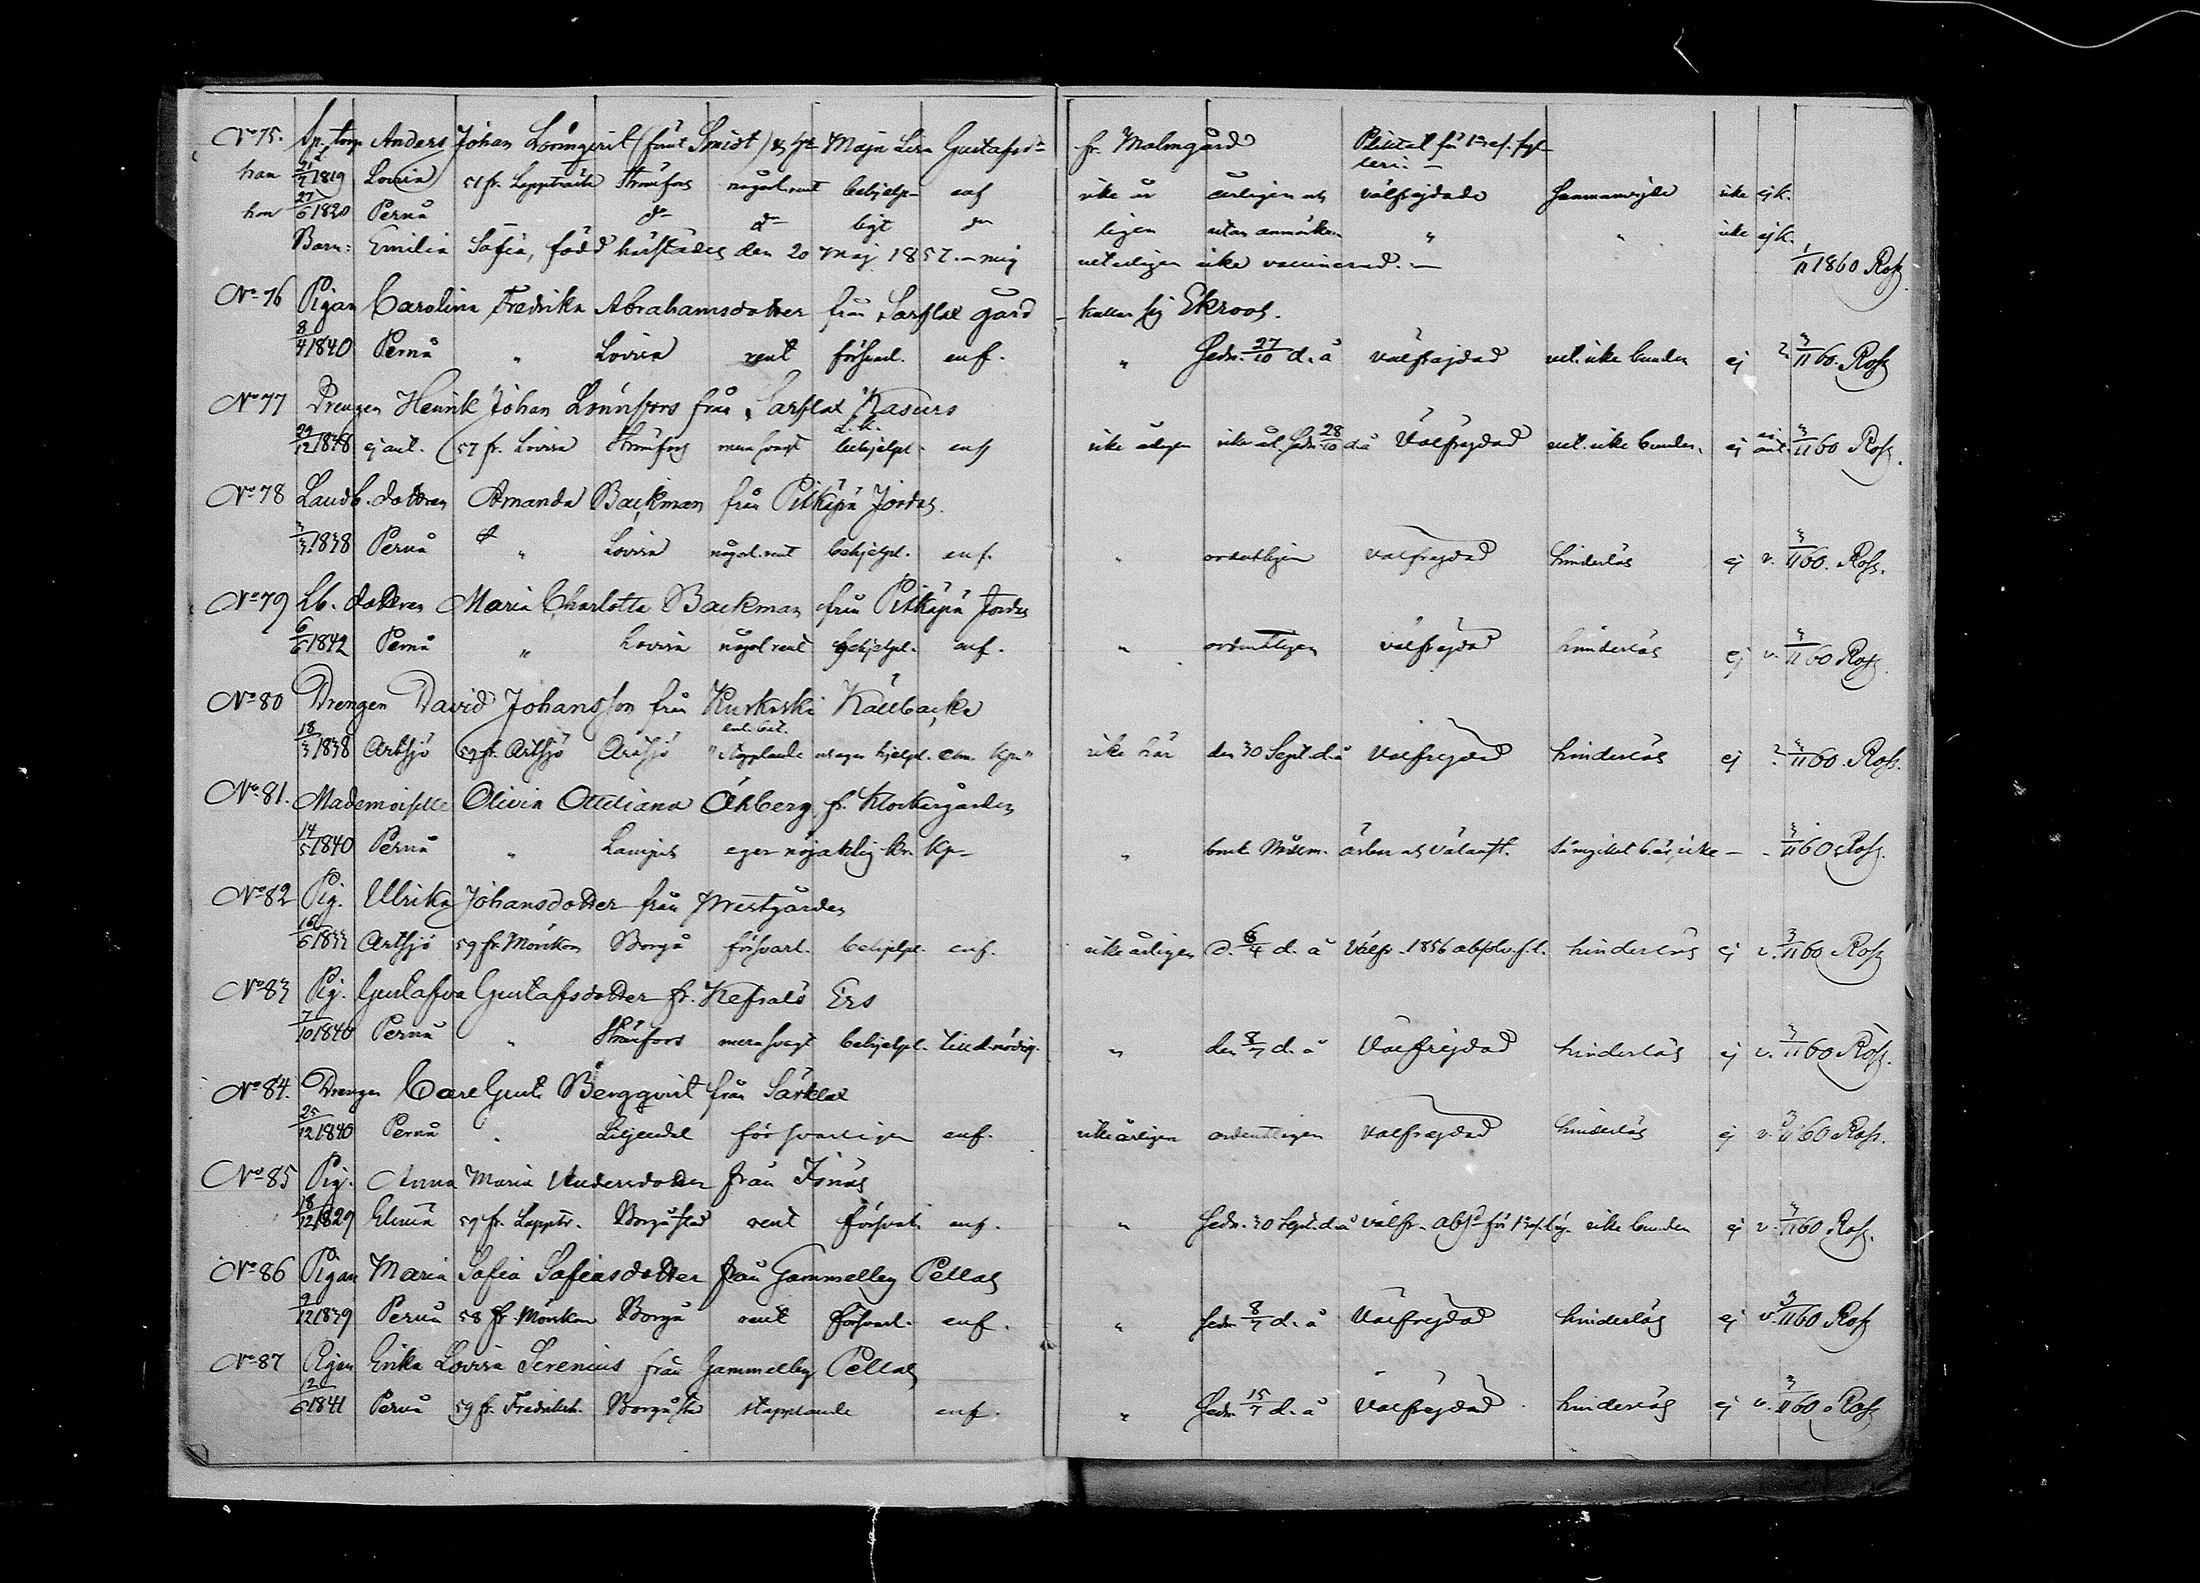 No 75. Anders Johan Lönnqvist (förut Smidt) Maja Lisa Gustafsdr fr. Malmgård
han 1819 Lovisa 51 fr. Lappträsk Strömfors någorl. rent behjelp- enf ike år ärligen välfrejdade ike ej k.
hon 27/6 1820 Pernå do do ligt do ligen utan anmärkn. " " ike ej k.
Barn: Emilia Sofia, född härstädes den 20 Maj 1857. – mig veterligen ike vaccinerad. – 1/11 1860 Ross
No 76 Pigan Carolina Fredrika Abrahamsdotter från Sarflax gård – kallar sig Ekroos.
8/4 1840 Pernå " Lovisa rent försvarl. enf. " sedn. 27/10 d. å välfrejdad vet. ike bunden ej 3/11 60. Ross
No 77 Drengen Henrik Johan Lönnfors från Sarflax Kasurs
29/12 1838 ej ant. 57 fr. Lovisa Strömfors behjelpl. enf ike årligen sedn 28/10 d å Välfrejdad vet. ike bunden. ej 3/11 60 Ross.
No 78 Landb. dottren Amanda Backman från Pitkäpä Jordas.
3/3 1838 Pernå " Lovisa någorl. rent behjelpl. enf. " ordentligen Välfrejdad hinderlös ej v. 3/11 60. Ross.
No 79 Lb. dottren Maria Charlotta Backman från Pitkäpä Jordas
6/6 1842 Pernå " Lovisa någorl rent behjelpl. enf. " ordentligen välfrejdad hinderlös ej v. 3/11 60 Ross.
No 80 Drengen David Johansson från Kuskoski Källbacka
18/3 1838 Artsjö 57 fr. Artsjö Artsjö "stapplande hjelpl. kp." ike här den 30 Sept. d. å Välfrejdad hinderlös ej 3/11 60. Ross.
No 81. Mademoiselle Olivia Ottiliana Öhberg fr. Klockargården
14/5 1840 Pernå " eger nöjaktig kr. kp– " – – 3/11 60 Ross.
No 82 Pig. Ulrika Johansdotter från Westgården
16/6 1833 Artsjö 59 fr. Mörskom Borgå försvarl. behjelpl. enf. ike årligen d. 6/4 d. å välfr. 1856 absolv. f. l. hinderlös ej v. 3/11 60 Ross
No 83 Pig. Gustafva Gustafsdotter fr. Kefsalö Ers
7/10 1840 Pernå " Strömfors mera svagt behjelpl. till d. nödig. " den 8/7 d. å Välfrejdad hinderlös ej v. 3/11 60 Ross.
No 84. Drengen Carl Gust. Bergqvist från Särklax
25/12 1840 Pernå " Liljendal försvarligen enf. ike årligen ordentligen Välfrejdad hinderlös ej v. 3/11 60 Ross.
No 85 Pig. Anna Maria Andersdotter från Jönäs
18/12 1829 Elimä 59 fr. Lapptr. Borgå stad rent försvarl. enf. " sedn. 30 Sept. d. å välfr. ike bunden ej v. 3/11 60 Ross.
No 86 Pigan Maria Sofia Safiasdotter från Gammelby Pellas
9/12 1839 Pernå 58 fr. Mörskom Borgå rent försvarl. enf. " sedn 8/7 d. å Välfrejdad hinderlös ej v. 3/11 60 Ross
No 87 Pigan Erika Lovisa Serenius från Gammelby Pellas
12/6 1841 Pernå 59 fr. Fredriksh. Borgå stad stapplande enf. " sedn 15/7 d. å Välfrejdad hinderlös ej v. 3/11 60 Ross